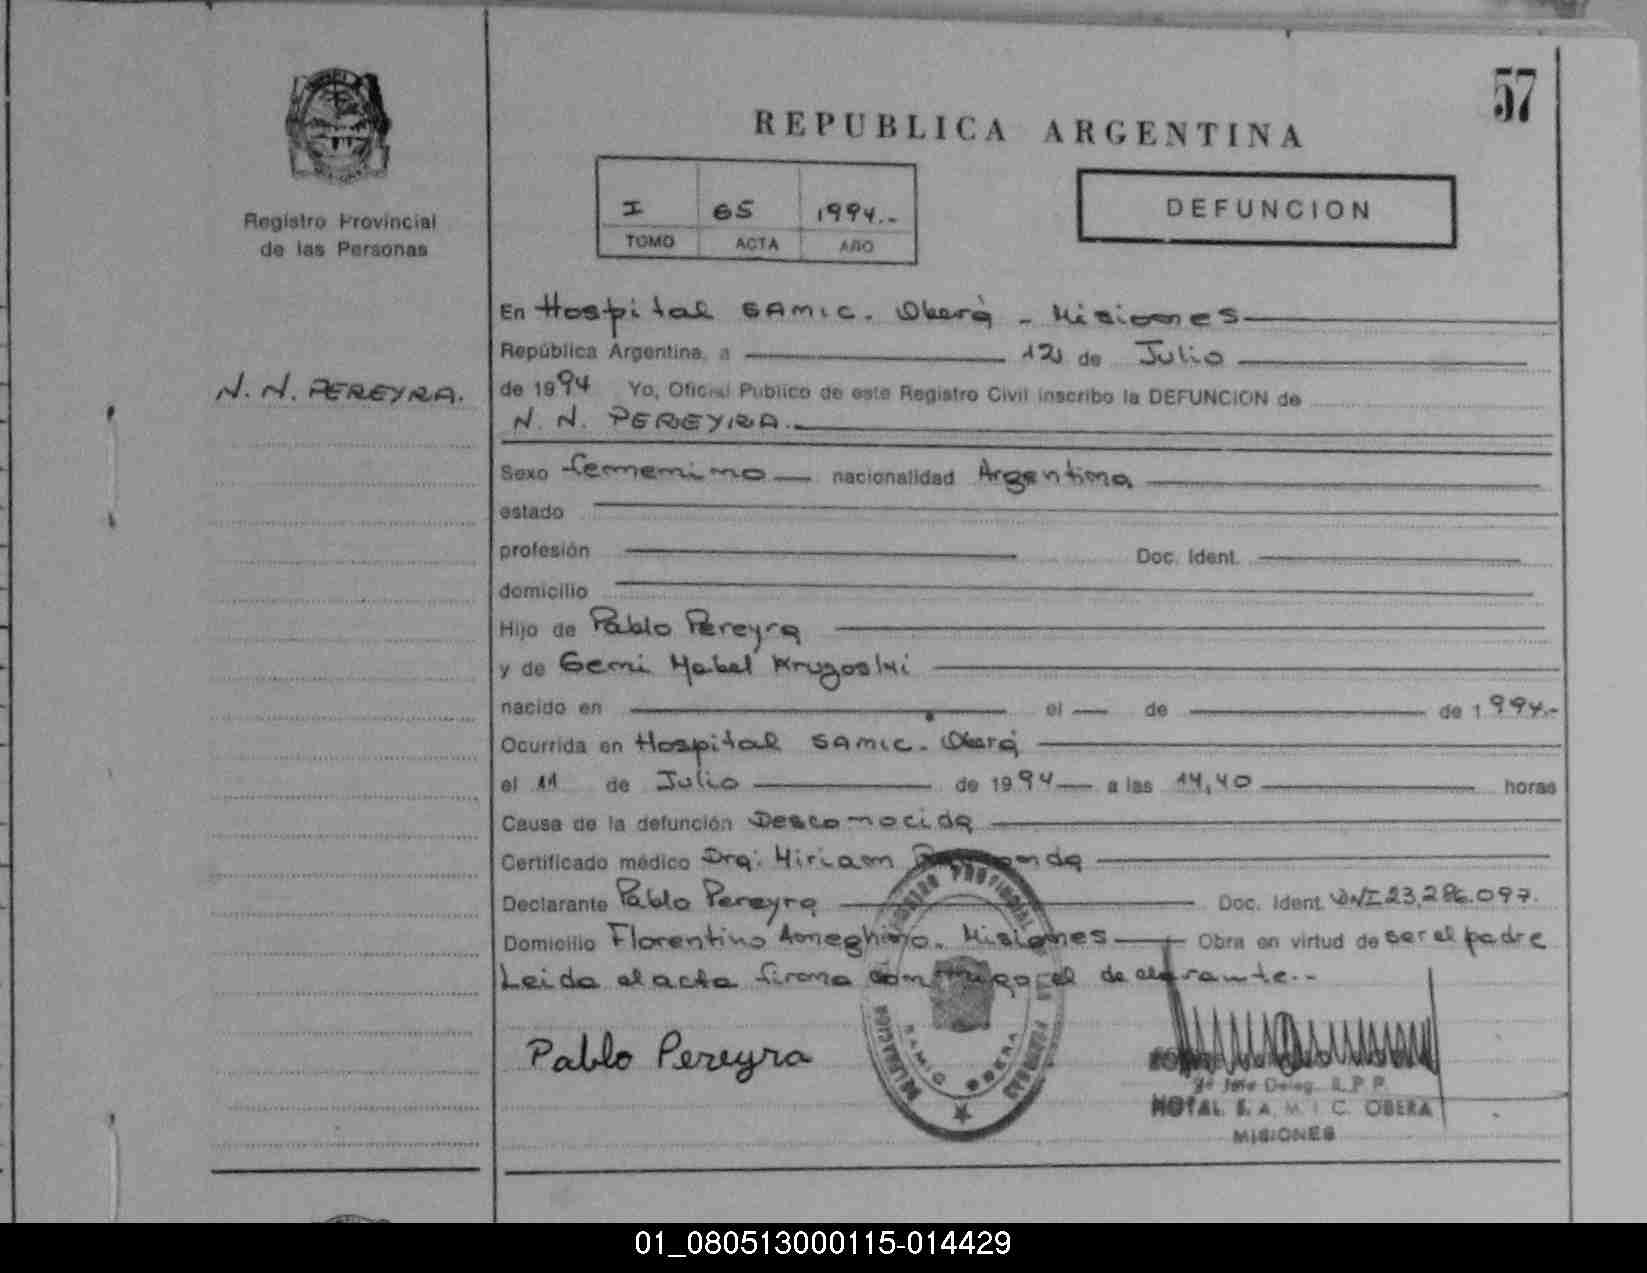 57
REPUBLICA ARGENTINA
I 65 1994.-
TOMO ACTA AÑO
DEFUNCION
Registro Provincial
de las Personas
N. N. PEREYRA.
En Hospital SAMIC. Oberá - Misiones
República Argentina, a 12 de Julio
de 1994 Yo, Oficial Publico de este Registro Civil inscribo la DEFUNCION de
N. N. PEREYRA.
Sexo femenino nacionalidad Argentina
estado
profesión Doc. Ident.
domicilio
Hijo de Pablo Pereyra
y de Geni Mabel Kruzoski
nacido en el de de 1994.-
Ocurrida en Hospital SAMIC. Oberá
el 11 de Julio de 1994 a las 14,40 horas
Causa de la defunción Desconocida
Certificado médico Dra. Miriam
Declarante Pablo Pereyra Doc. Ident. DNI 23.286.097.
Domicilio Florentino Ameghino. Misiones Obra en virtud de ser el padre
Leida el acta firma conmigo el declarante.-
Pablo Pereyra
REGISTRO PROVINCIAL DE LAS PERSONAS
DELEGACION
SAMIC OBERA
Jefe Deleg. R.P.P.
HOTAL. S. A. M. I. C. OBERA
MISIONES
01_080513000115-014429